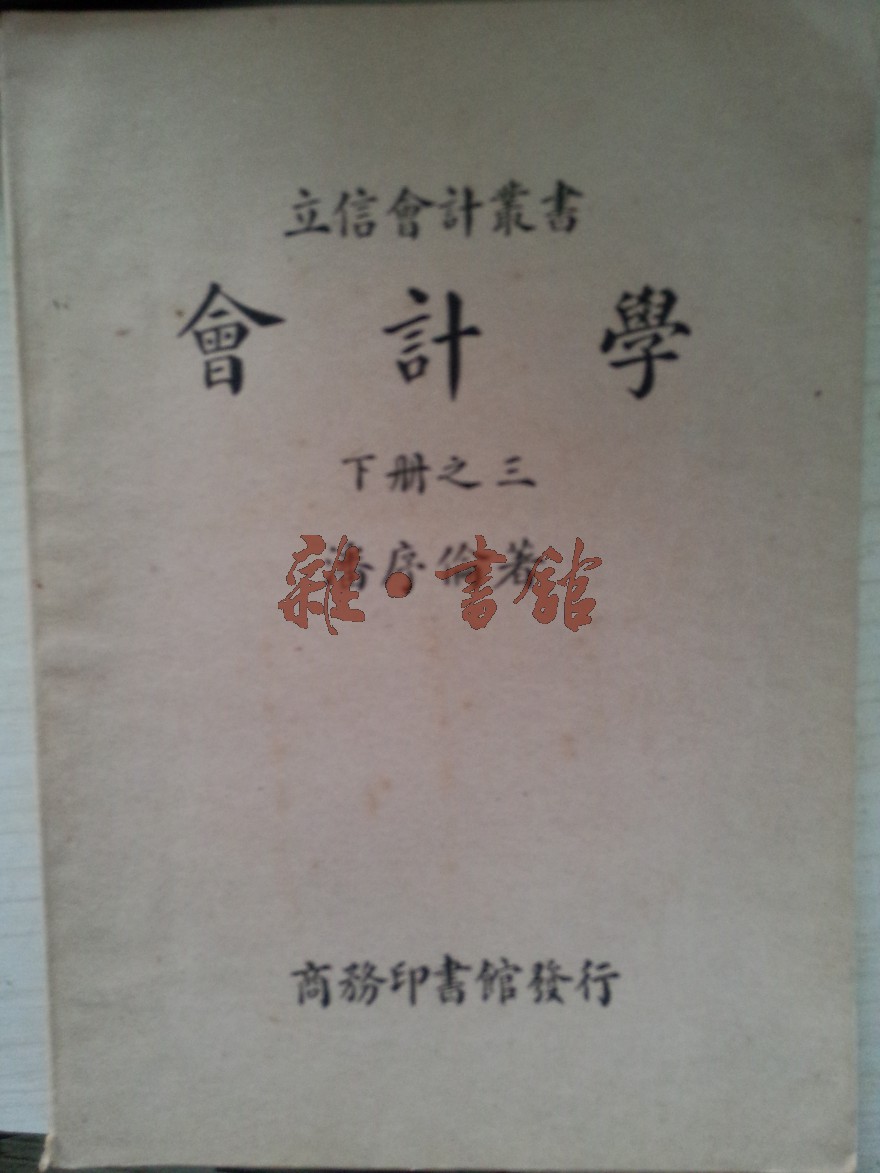 立信會計叢書
會計學
下册之三
潘序倫著
雜·書館
商務印書館發行